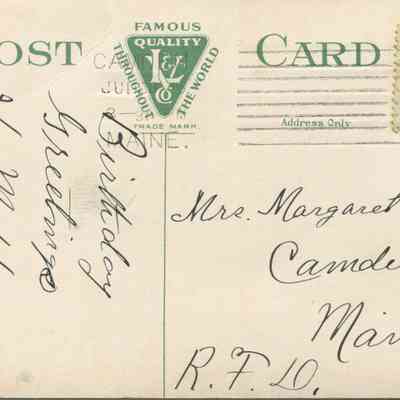 OST CARD
FAMOUS
QUALITY
THROUGHOUT THE WORLD
L & Co
TRADE MARK
CA
JU
AINE.
Address Only
Birthday
Greetings
Mrs. Margaret
Camde
Main
R. F. D.